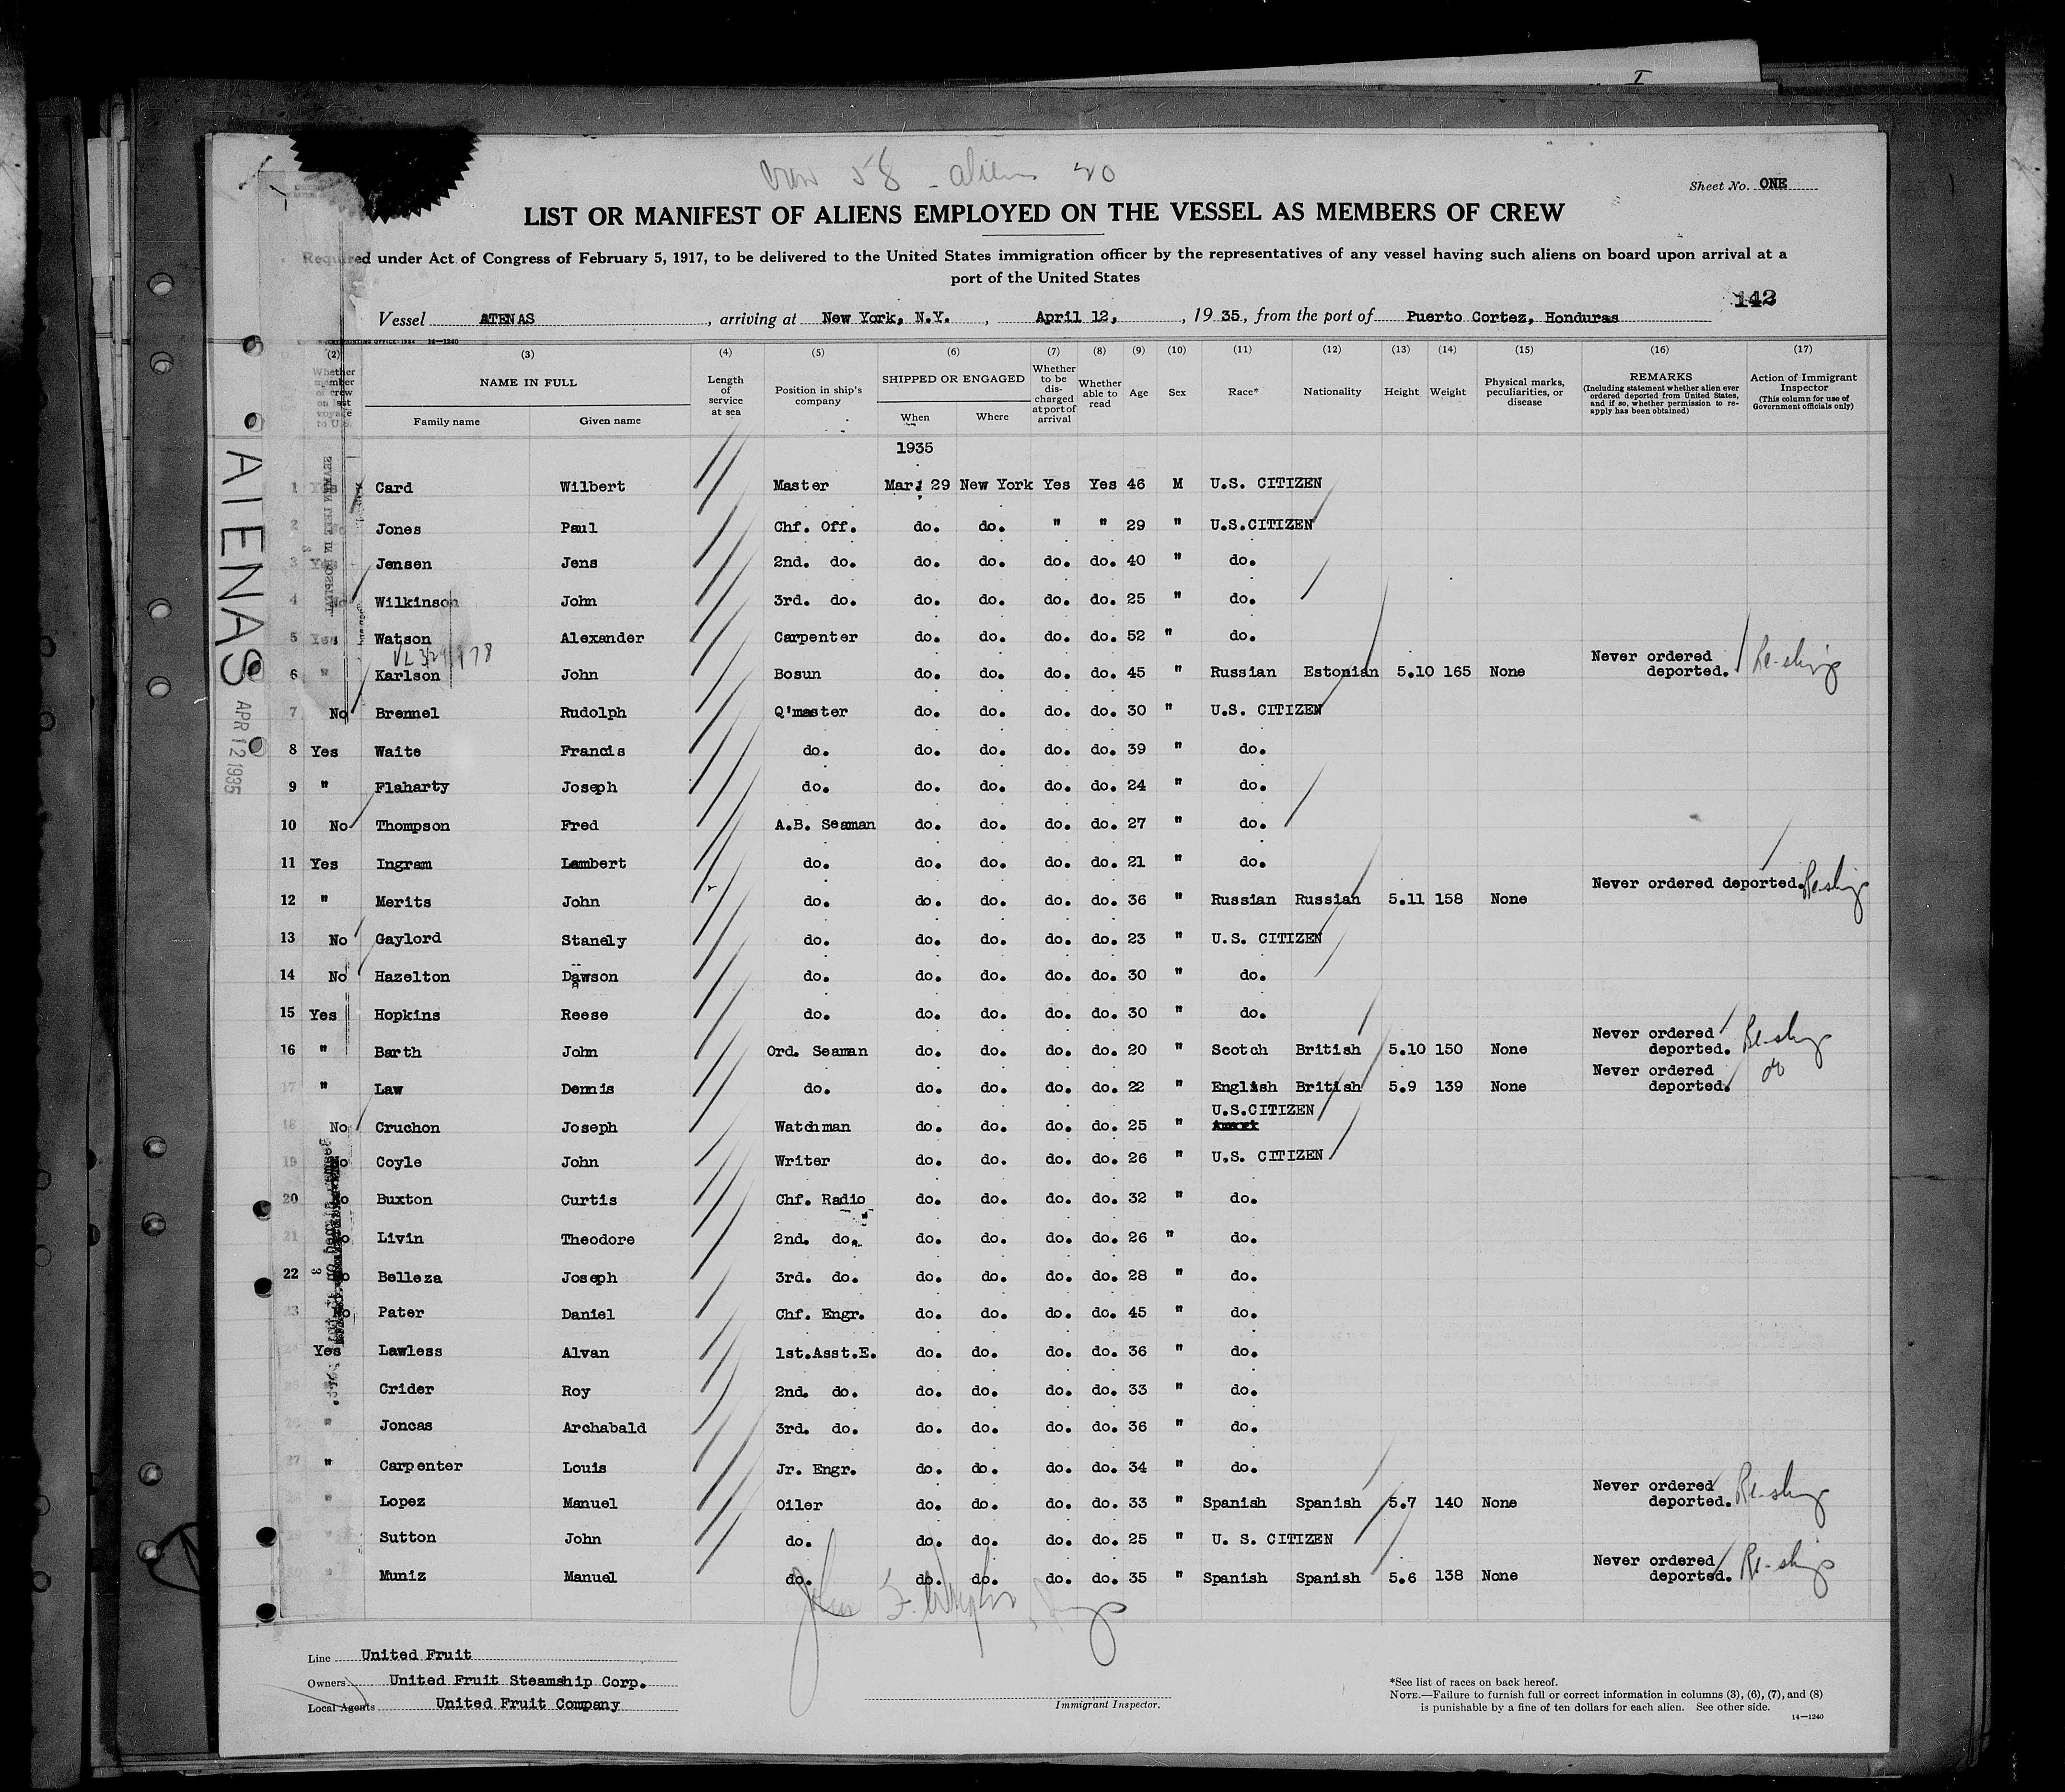 crew 58 - aliens 20
Sheet No. ONE
LIST OR MANIFEST OF ALIENS EMPLOYED ON THE VESSEL AS MEMBERS OF CREW
Required under Act of Congress of February 5, 1917, to be delivered to the United States immigration officer by the representatives of any vessel having such aliens on board upon arrival at a
port of the United States
142
Vessel ATENAS, arriving at New York, N.Y., April 12, 1935, from the port of Puerto Cortez, Honduras
14—1240
(2) (3) (4) (5) (6) (7) (8) (9) (10) (11) (12) (13) (14) (15) (16) (17)
Whether member of crew on last voyage to U.S. NAME IN FULL Family name Given name Length of service at sea Position in ship's company SHIPPED OR ENGAGED When Where Whether to be discharged at port of arrival Whether able to read Age Sex Race* Nationality Height Weight Physical marks, peculiarities, or disease REMARKS (Including statement whether alien ever ordered deported from United States, and if so, whether permission to reapply has been obtained) Action of Immigrant Inspector (This column for use of Government officials only)
1935
1 Yes Card Wilbert Master Mar. 29 New York Yes Yes 46 M U.S. CITIZEN
2 No Jones Paul Chf. Off. do. do. " " 29 " U.S.CITIZEN
3 Yes Jensen Jens 2nd. do. do. do. do. do. 40 " do.
4 No Wilkinson John 3rd. do. do. do. do. do. 25 " do.
5 Yes Watson Alexander Carpenter do. do. do. do. 52 " do.
6 " Karlson John Bosun do. do. do. do. 45 " Russian Estonian 5.10 165 None Never ordered deported. Re-ships
7 No Brennel Rudolph Q'master do. do. do. do. 30 " U.S. CITIZEN
8 Yes Waite Francis do. do. do. do. do. 39 " do.
9 " Flaharty Joseph do. do. do. do. do. 24 " do.
10 No Thompson Fred A.B. Seaman do. do. do. do. 27 " do.
11 Yes Ingram Lambert do. do. do. do. do. 21 " do.
12 " Merits John do. do. do. do. do. 36 " Russian Russian 5.11 158 None Never ordered deported. Re-ships
13 No Gaylord Stanely do. do. do. do. do. 23 " U.S. CITIZEN
14 No Hazelton Dawson do. do. do. do. do. 30 " do.
15 Yes Hopkins Reese do. do. do. do. do. 30 " do.
16 " Barth John Ord. Seaman do. do. do. do. 20 " Scotch British 5.10 150 None Never ordered deported. Re-ships
17 " Law Dennis do. do. do. do. do. 22 " English British 5.9 139 None Never ordered deported. do
18 No Cruchon Joseph Watchman do. do. do. do. 25 " U.S.CITIZEN
19 No Coyle John Writer do. do. do. do. 26 " U.S. CITIZEN
20 No Buxton Curtis Chf. Radio do. do. do. do. 32 " do.
21 No Livin Theodore 2nd. do. do. do. do. do. 26 " do.
22 No Belleza Joseph 3rd. do. do. do. do. do. 28 " do.
23 No Pater Daniel Chf. Engr. do. do. do. do. 45 " do.
24 Yes Lawless Alvan 1st.Asst.E. do. do. do. do. 36 " do.
25 " Crider Roy 2nd. do. do. do. do. do. 33 " do.
26 " Joncas Archabald 3rd. do. do. do. do. do. 36 " do.
27 " Carpenter Louis Jr. Engr. do. do. do. do. 34 " do.
28 " Lopez Manuel Oiler do. do. do. do. 33 " Spanish Spanish 5.7 140 None Never ordered deported. Re-ships
29 " Sutton John do. do. do. do. do. 25 " U. S. CITIZEN
30 " Muniz Manuel do. do. do. do. do. 35 " Spanish Spanish 5.6 138 None Never ordered deported. Re-ships
ATENAS
APR 12 1935
Line United Fruit
Owners United Fruit Steamship Corp.
Local Agents United Fruit Company
Immigrant Inspector.
*See list of races on back hereof.
NOTE.—Failure to furnish full or correct information in columns (3), (6), (7), and (8)
is punishable by a fine of ten dollars for each alien. See other side.
14—1240